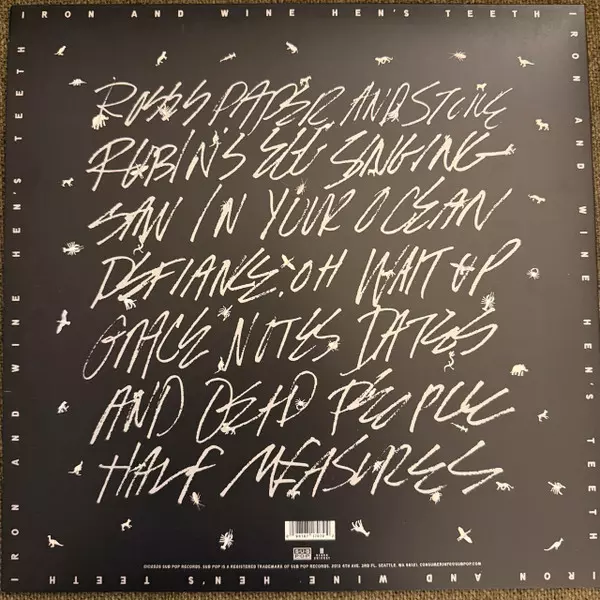 IRON AND WINE HEN'S TEETH
IRON AND WINE HEN'S TEETH
IRON AND WINE HEN'S TEETH
ROSES PAPER AND STONE
ROBIN'S EGG SINGING
SAW IN YOUR OCEAN
DEFIANCE, OH WAIT UP
GRACE NOTES DATES
AND DEAD PEOPLE
HALF MEASURES
SUB POP
SUB POP RECORDS. SUB POP IS A REGISTERED TRADEMARK OF SUB POP RECORDS. 2013 4TH AVE. 3RD FL. SEATTLE, WA 98121.
IRON AND WINE HEN'S TEETH